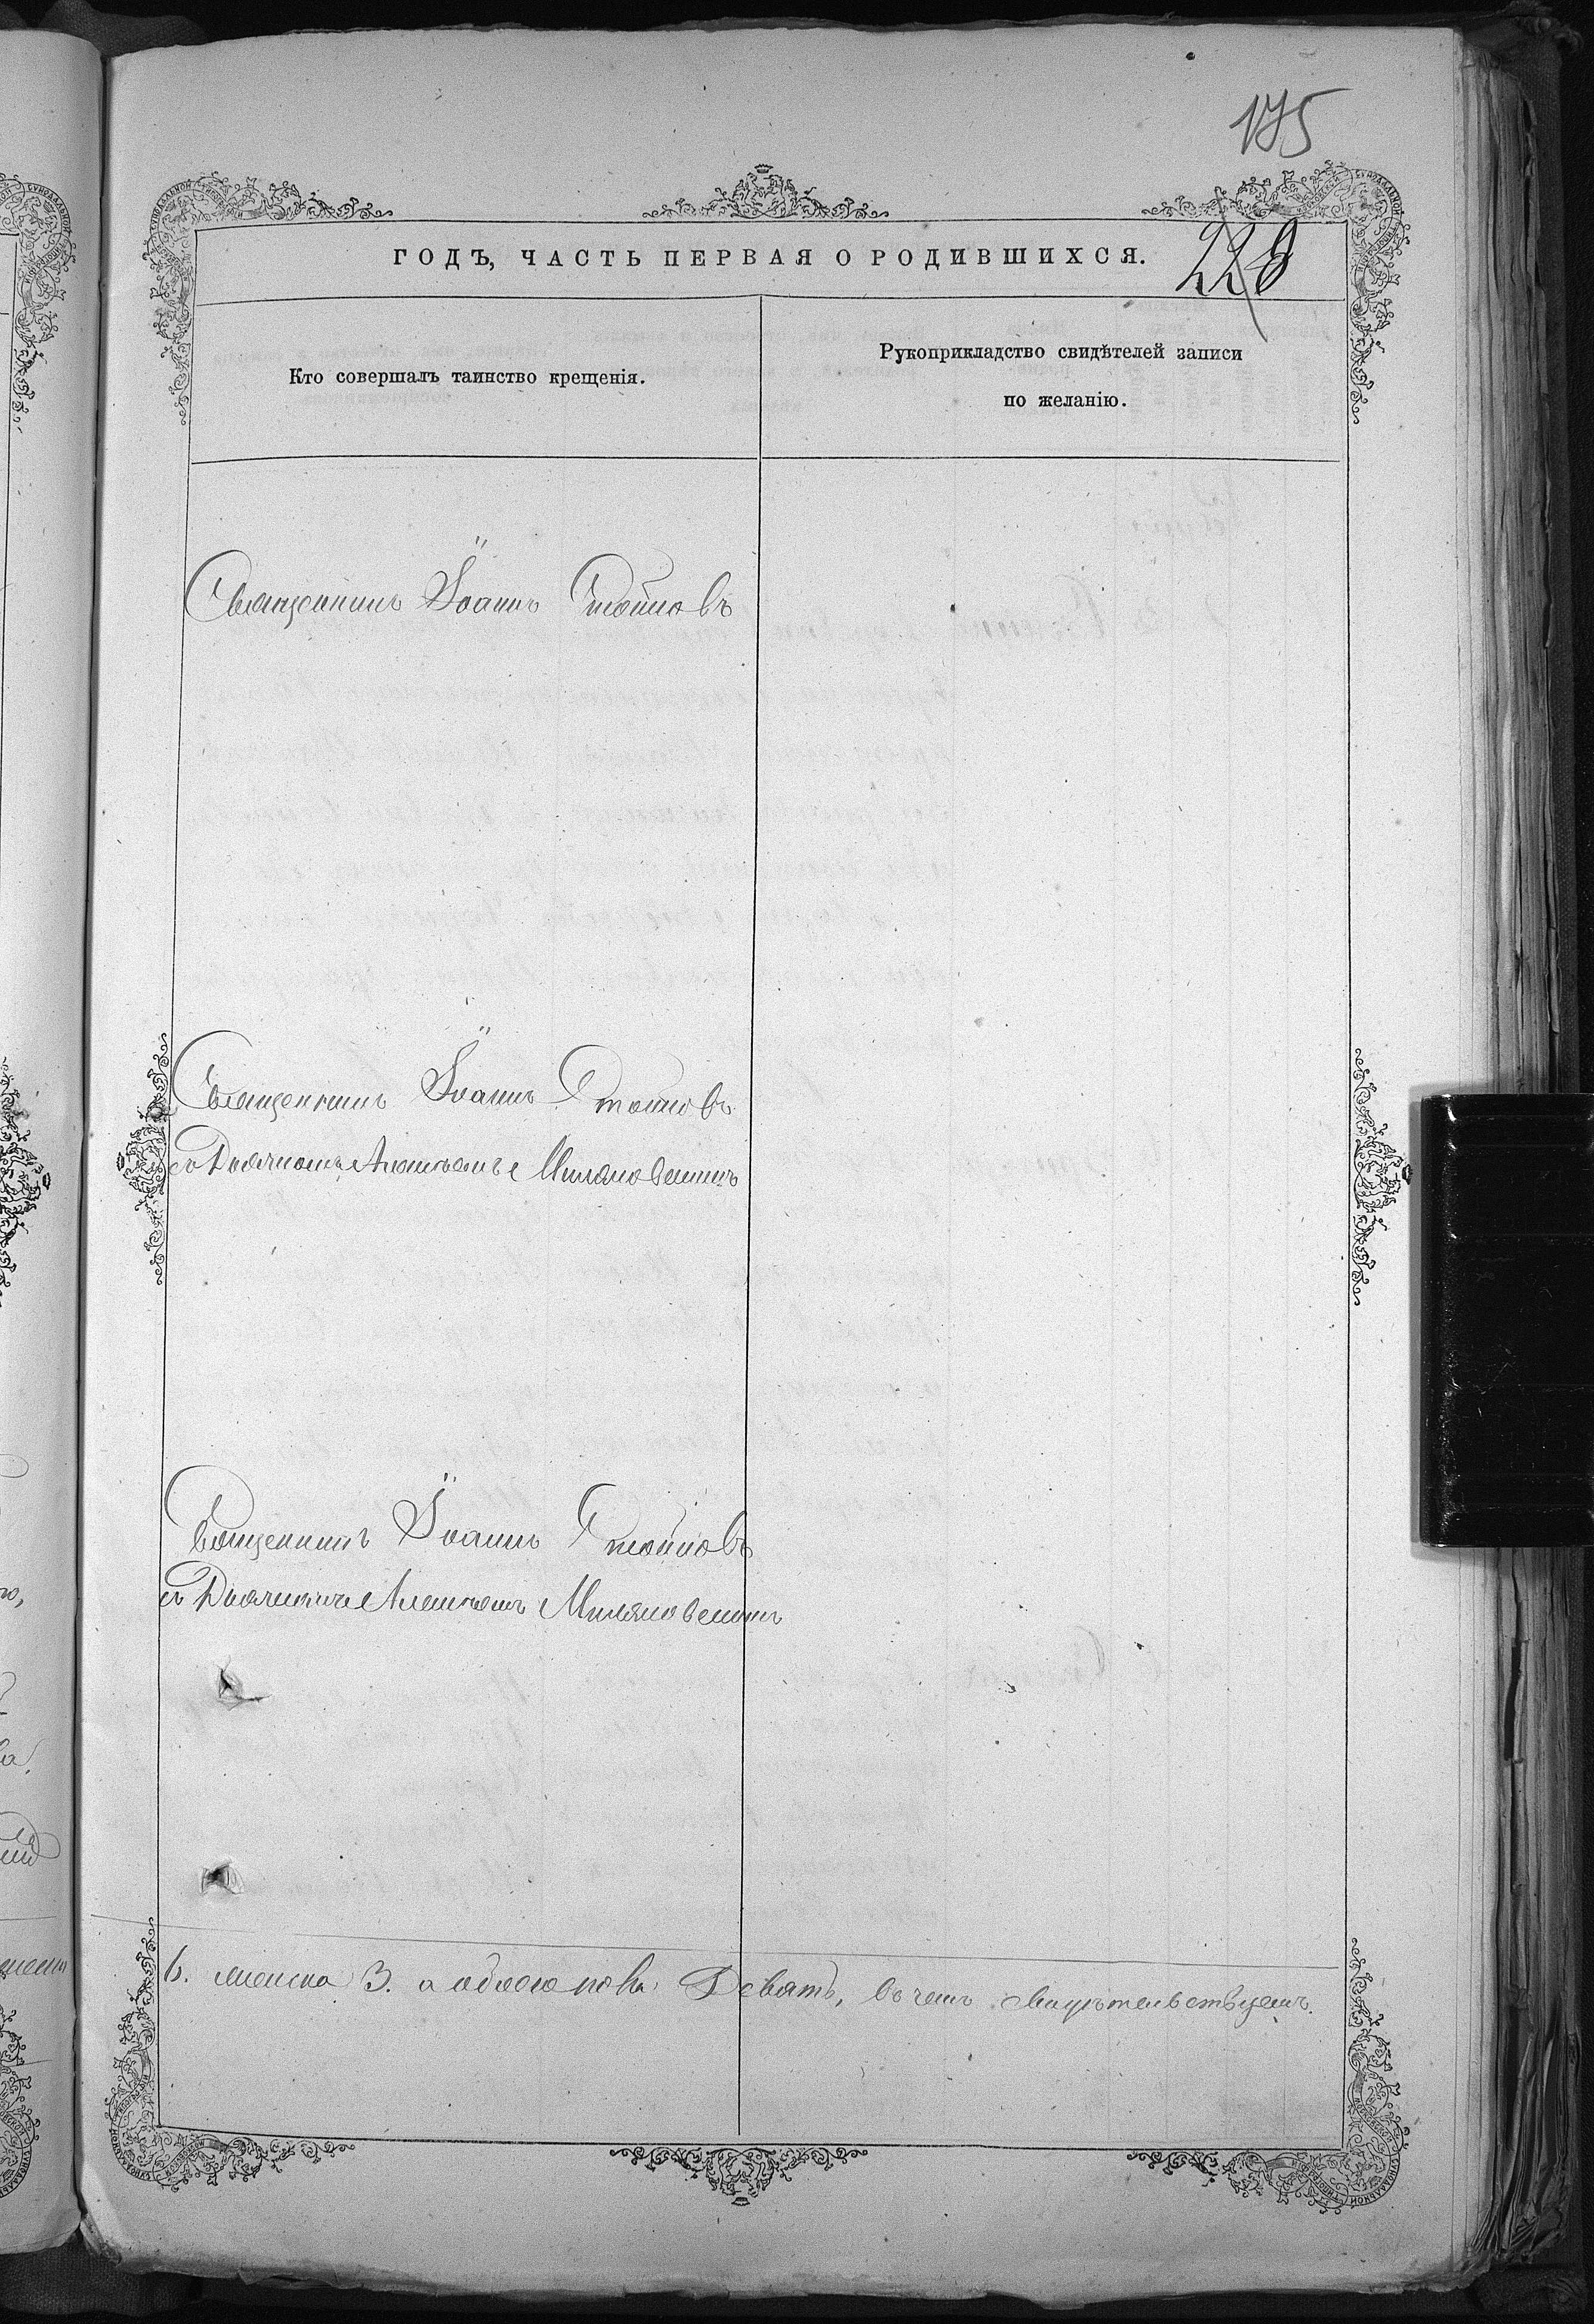 175
ГОДЪ, ЧАСТЬ ПЕРВАЯ О РОДИВШИХСЯ.
228
Кто совершалъ таинство крещенія.
Рукоприкладство свидѣтелей записи
по желанію.
Священникъ Іоаннъ Стойковъ
Священникъ Іоаннъ Стойковъ
съ Дьячкомъ Миляновскимъ
Священникъ Іоаннъ Стойковъ
съ Дьячкомъ Миляновскимъ
6. женска 3. а обоего пола Девять, въ чемъ свидѣтельствуемъ.